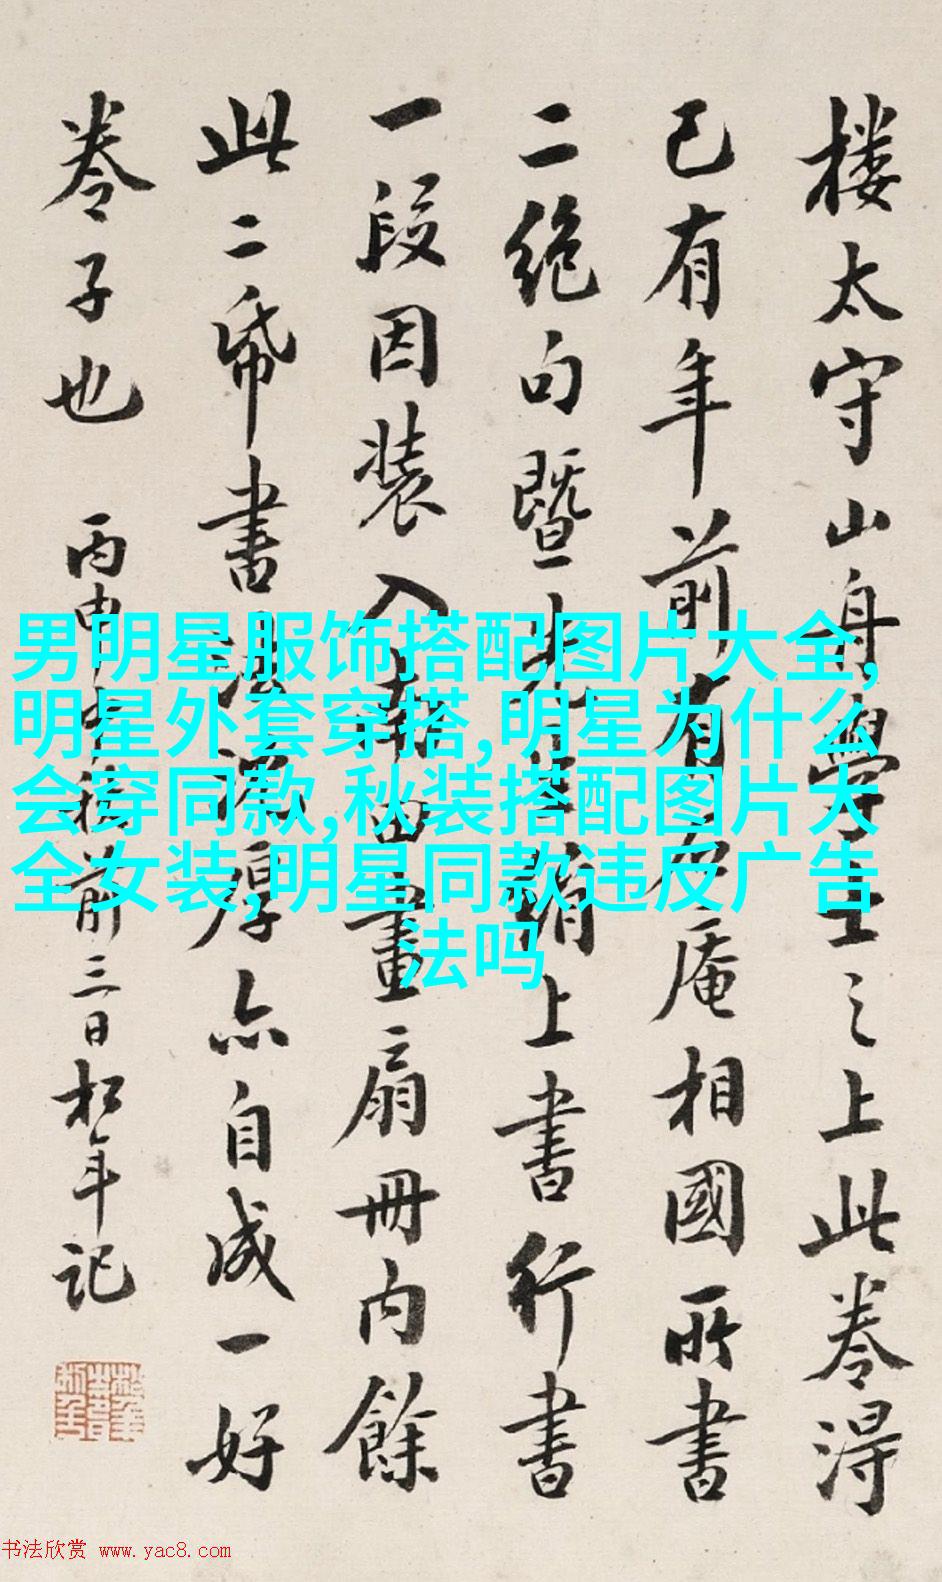 楼太守山舟學士之上此卷得
已有年前有庵相國所書
二絕句暨上書行書
一段因装入南田畫扇冊内餘
此二帋書法濃厚亦自成一好
卷子也 丙申前三日松年记
男明星服饰搭配图片大全,
明星外套穿搭,明星为什么
会穿同款,秋装搭配图片大
全女装,明星同款违反广告
法吗
书法欣赏 www.yac8.com